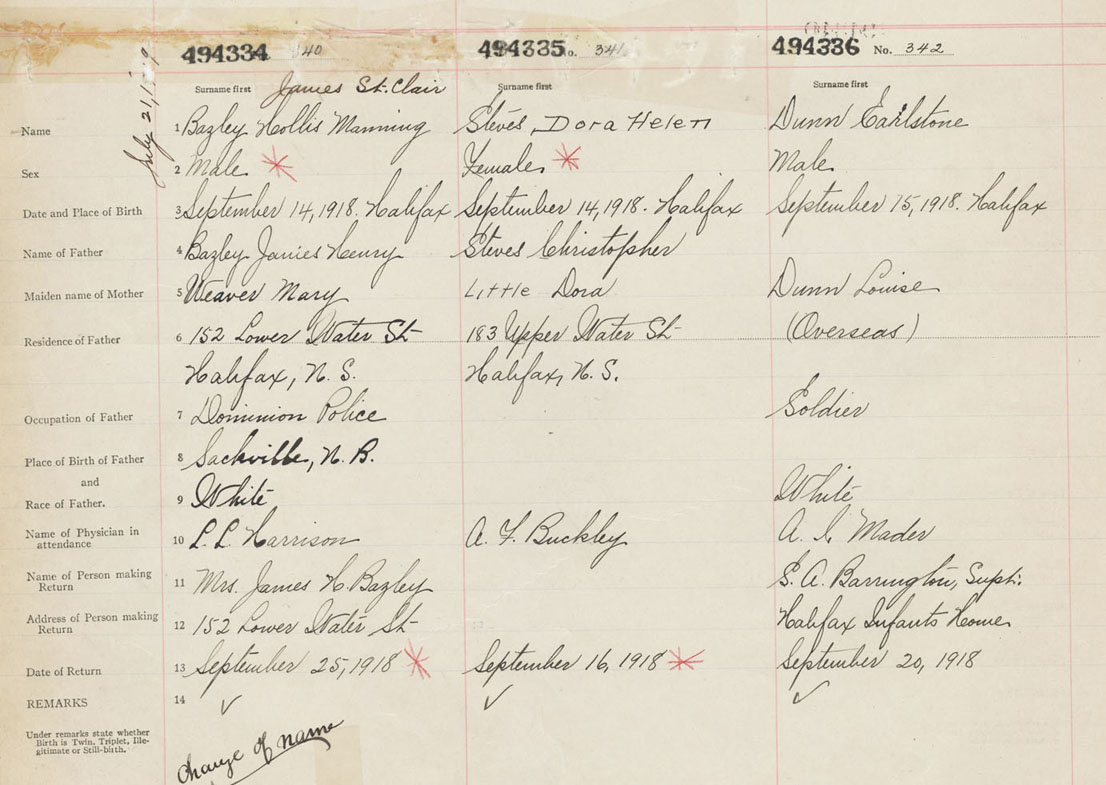 494334 40 494335 No. 341 494336 No. 342
Surname first James St. Clair Surname first Surname first
Name 1 Bazley Hollis Manning Steves, Dora Helen Dunn Earlstone
Sex 2 Male Females Male
Date and Place of Birth 3 September 14, 1918. Halifax September 14, 1918. Halifax September 15, 1918. Halifax
Name of Father 4 Bazley James Henry Steves Christopher
Maiden name of Mother 5 Weaver Mary Little Dora Dunn Louise
Residence of Father 6 152 Lower Water St 183 Upper Water St (Overseas)
Halifax, N. S. Halifax, N. S.
Occupation of Father 7 Dominion Police Soldier
Place of Birth of Father 8 Sackville, N. B.
and
Race of Father. 9 White White
Name of Physician in
attendance 10 L. L. Harrison A. F. Buckley A. I. Mader
Name of Person making
Return 11 Mrs. James H. Bazley S. A. Barrington, Supt.
Address of Person making
Return 12 152 Lower Water St Halifax Infants Home
Date of Return 13 September 25, 1918 September 16, 1918 September 20, 1918
REMARKS 14
Under remarks state whether
Birth is Twin, Triplet, Ille-
gitimate or Still-birth.
Change of name
July 21,